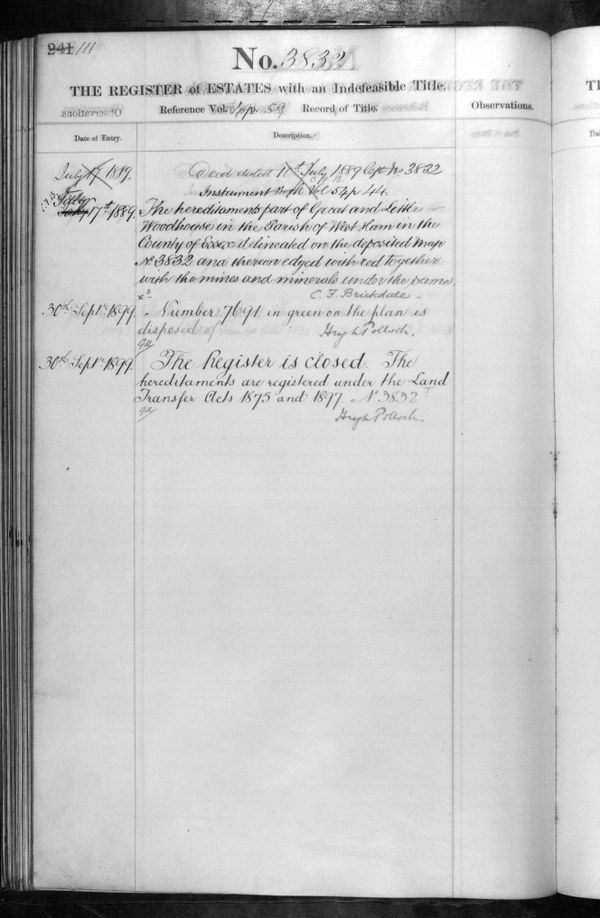 241 111
No. 3832
THE REGISTER of ESTATES with an Indefeasible Title.
Reference Vol. pp. 59 Record of Title.
Observations.
Date of Entry.
Description.
July 17 1889.
Deed dated 11th July 1889 No 3832
Instrument Book Vol 5 pp 44.
July 17th 1889.
The hereditaments part of Great and Little
Woodhouse in the Parish of West Ham in the
County of Essex delineated on the deposited Map
No 3832 and thereon edged with red together
with the mines and minerals under the same
C. F. Brickdale
30th Septr 1899.
Number 7691 in green on the plan is
disposed of
Hugh Pollock.
30th Septr 1899
The Register is closed. The
hereditaments are registered under the Land
Transfer Acts 1875 and 1897. No 3832
Hugh Pollock.